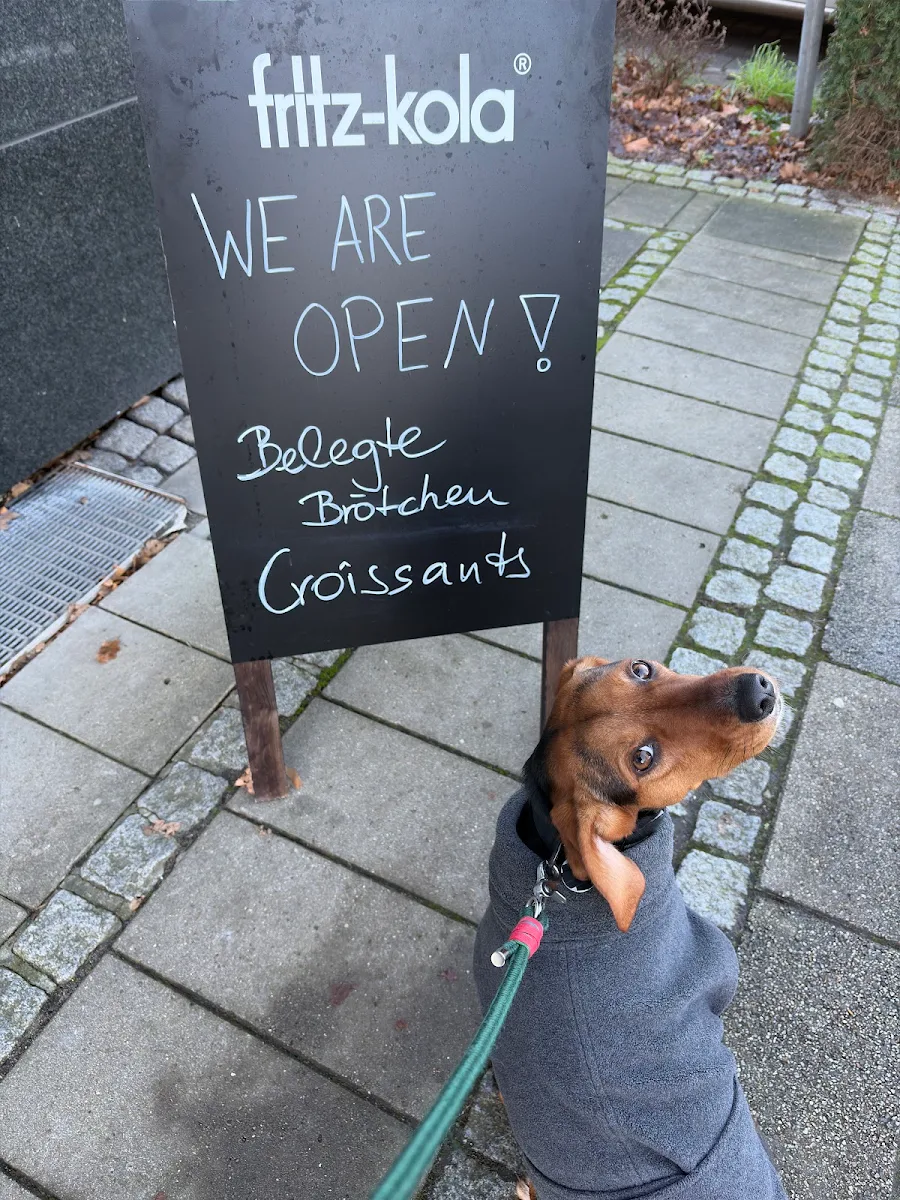 fritz-kola®
WE ARE
OPEN !
Belegte
Brötchen
Croissants